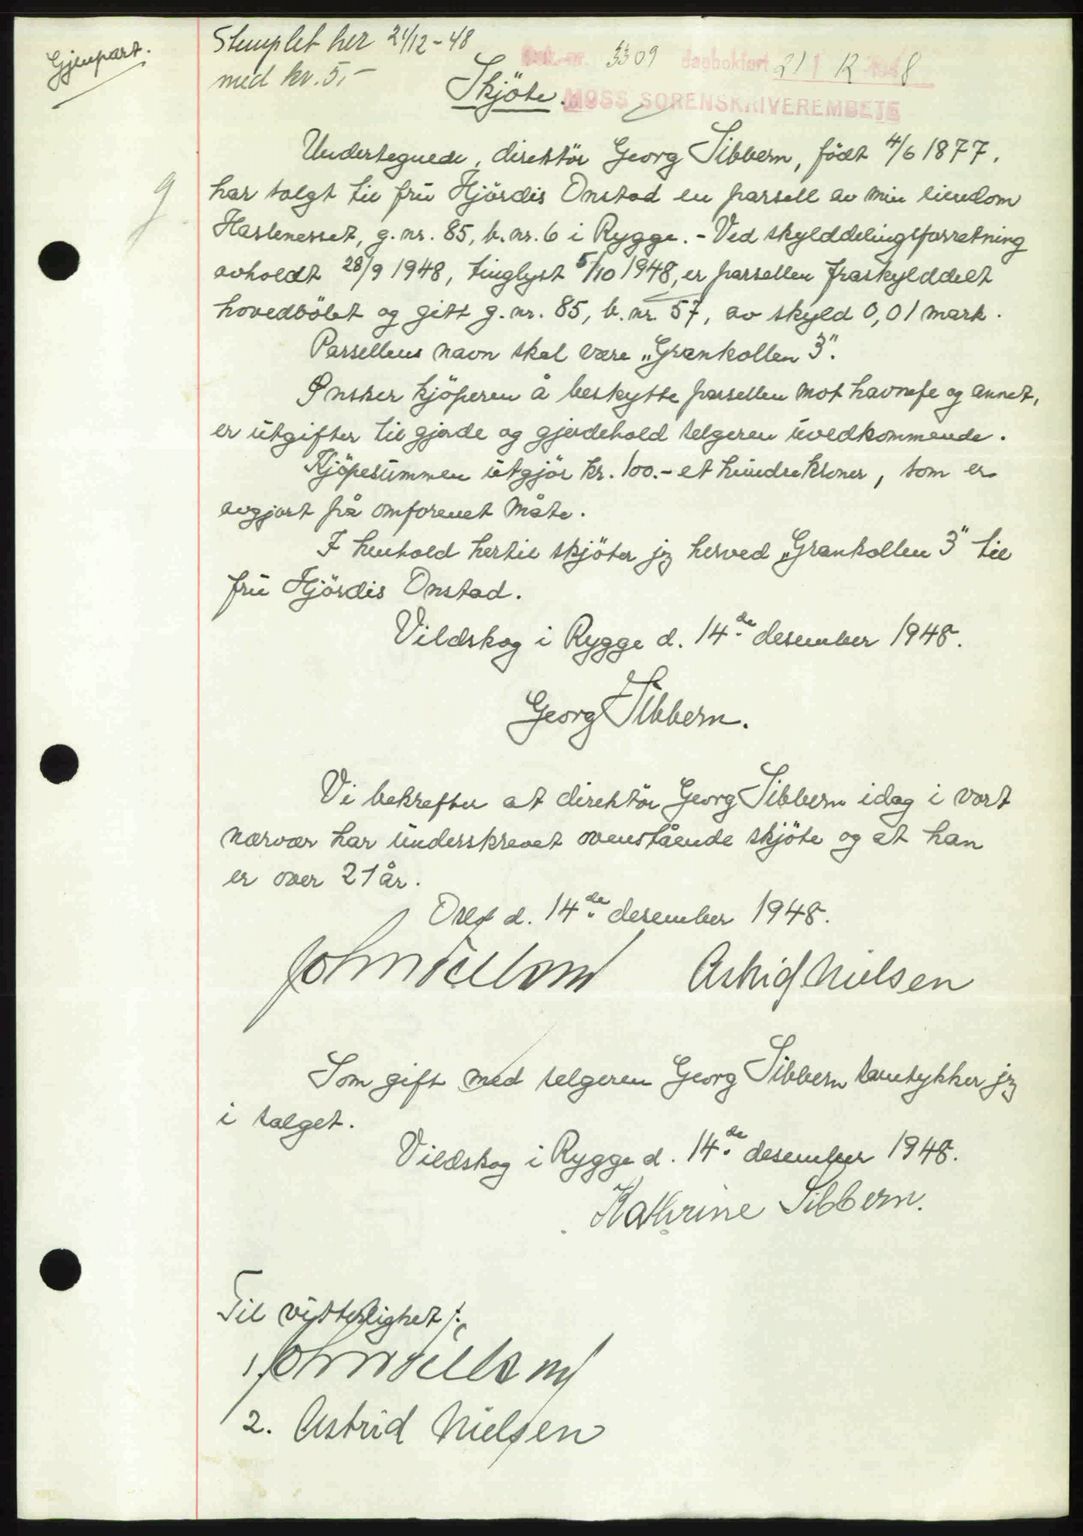 Gjenpart.
Stemplet her 21/12-48
med kr. 5,-
Dok. nr. 3309 dagbokført 21/12 1948
MOSS SORENSKRIVEREMBETE
Skjöte.
Undertegnede, direktör Georg Sibbern, födt 4/6 1877,
har solgt til fru Hjördis Onstad en parsell av min eiendom
Haslenesset, g.nr. 85, b.nr. 6 i Rygge. - Ved skylddelingsforretning
avholdt 28/9 1948, tinglyst 5/10 1948, er parsellen fraskylddelt
hovedbölet og gitt g.nr. 85, b.nr. 57, av skyld 0,01 mark.
Parsellens navn skal være „Grankollen 3".
Önsker kjöperen å beskytte parsellen mot havnefe og annet,
er utgifter til gjerde og gjerdehold selgeren uvedkommende.
Kjöpesummen utgjör kr. 100.- et hundre kroner, som er
avgjort på omforenet måte.
I henhold hertil skjöter jeg herved „Grankollen 3" til
fru Hjördis Onstad.
Vildskog i Rygge d. 14de desember 1948.
Georg Sibbern.
Vi bekrefter at direktör Georg Sibbern idag i vort
nærvær har underskrevet ovenstående skjöte og at han
er over 21 år.
Oslo d. 14de desember 1948.
Astrid Nielsen
Som gift med selgeren Georg Sibbern samtykker jeg
i salget.
Vildskog i Rygge d. 14de desember 1948.
Kathrine Sibbern.
Til vitterlighet:
1.
2. Astrid Nielsen